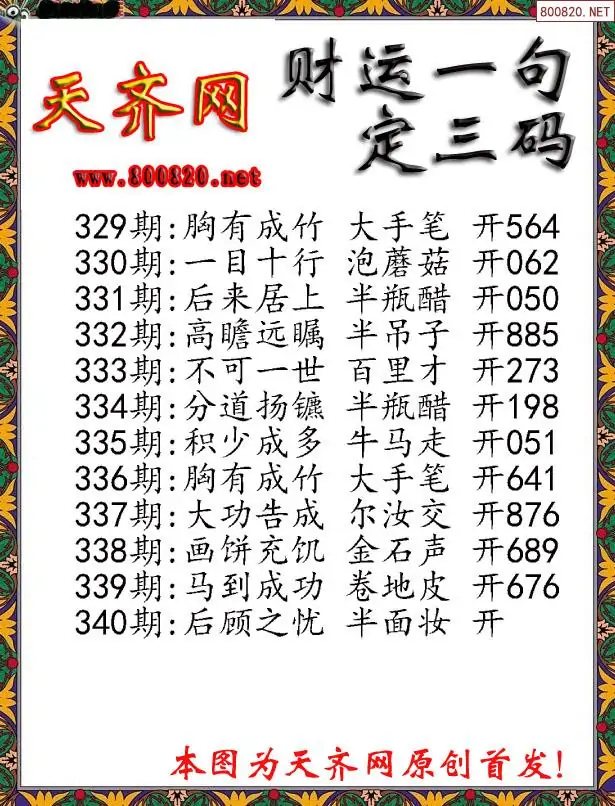 800820.NET
财运一句
定三码
天齐网
www.800820.net
329期:胸有成竹 大手笔 开564
330期:一目十行 泡蘑菇 开062
331期:后来居上 半瓶醋 开050
332期:高瞻远瞩 半吊子 开885
333期:不可一世 百里才 开273
334期:分道扬镳 半瓶醋 开198
335期:积少成多 牛马走 开051
336期:胸有成竹 大手笔 开641
337期:大功告成 尔汝交 开876
338期:画饼充饥 金石声 开689
339期:马到成功 卷地皮 开676
340期:后顾之忧 半面妆 开
本图为天齐网原创首发!